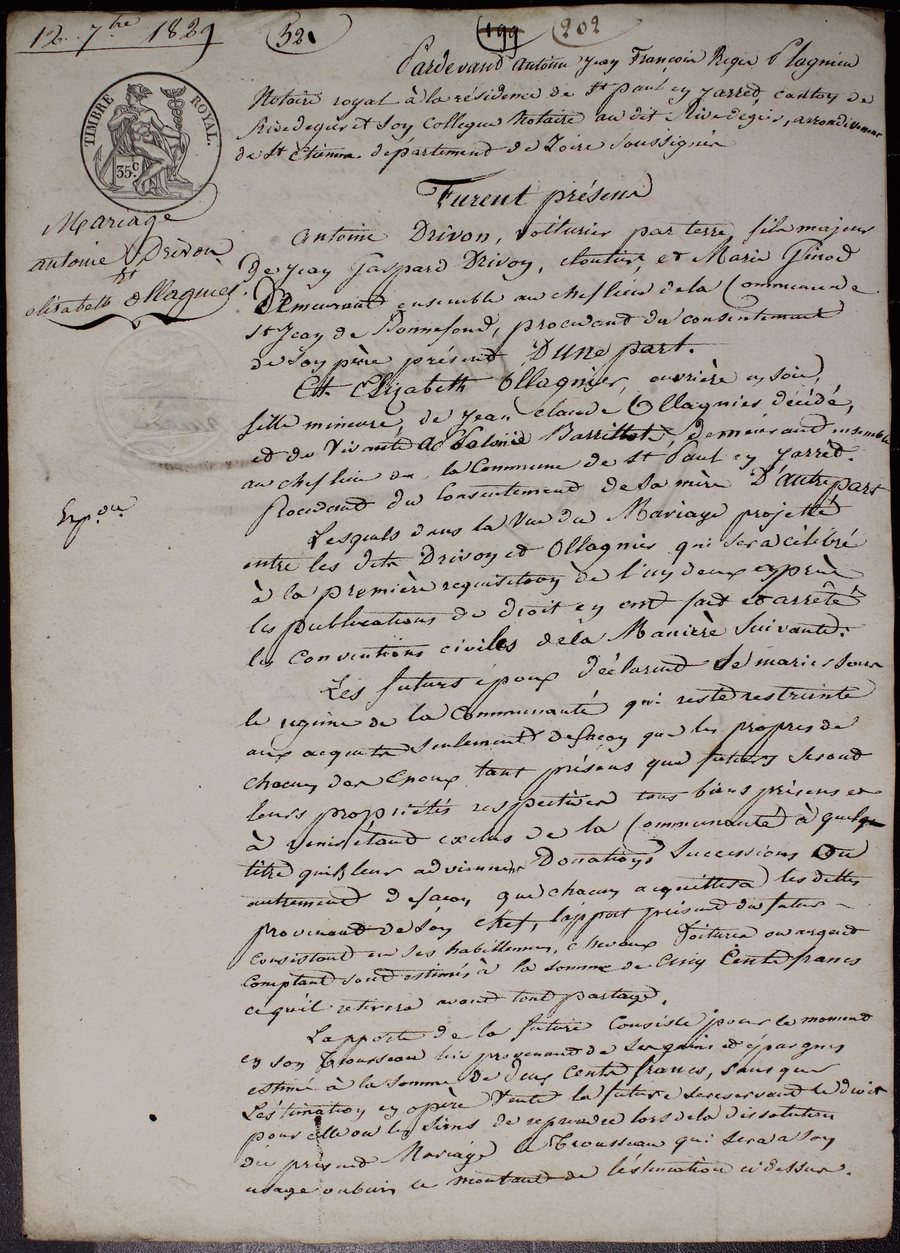 12. 7bre 1829
52
199
202
TIMBRE ROYAL.
35c.
Mariage
antoine Drivon
et
elizabeth Ollagnier
Pardevand Antoine Jean François Régis Plagnieu
Notaire royal à la résidence de St paul en Jarred, canton de
Rivedegier et Son Collegue Notaire au dit Rivedegier, arrondissement
de St Etienne département de Loire Soussignés
Furent présens
Antoine Drivon, voiturier par terre, fils majeur
de Jean Gaspard Drivon, cloutier, et Marie
Demeurand ensemble au chef lieu de la Commune de
St Jean de Bonnefond, procédand du consentement
de Son père présend D'une part.
Ett Elizabeth Ollagnier, ouvrière en soie,
fille mineure, de Jean claude Ollagnier décédé,
et de Vivante Barrillot, demeurand ensemble
au chef lieu de la Commune de St Paul en Jarred.
Procédand du Consentement de Sa mère D'autre part
Lesquels dans la Vue du Mariage projetté
entre les dits Drivon et Ollagnier qui Sera célébré
à la première requisition de l'un d'eux après
les publications de droit en ont fait et arrêté
les Conventions civiles de la Manière Suivante.
Les futurs époux déclarend Se marier Sous
le regime de la Communauté qui reste restrainte
aux acquets Seulement de façon que les propres de
chacun des Epoux tant présens que futurs Seront
leurs propriétés respectives tous biens présens et
à venir étand exclus de la Communauté à quelque
titre qu'ils leur adviennent Donations Successions Ou
autrement de façon que chacun acquittera les dettes
provenand de Son Chef, l'apport présend du futur
Consistand en Ses habillemens, chevaux Voitures ou argend
Comptand Sond estimés à la Somme de Cinq Cents francs
ce qu'il retirera avand tout partage.
L'apporte de la future Consiste pour le moment
en Son Trousseau provenand de Ses gains et épargnes
estimé à la Somme de deux Cents francs, Sans que
L'estimation en opère Vente la future Se reservand le droit
pour elle ou les Siens de reprendre lors de la dissolution
du présend Mariage le Trousseau qui Sera a Son
usage ou bien le montant de l'estimation ci dessus.